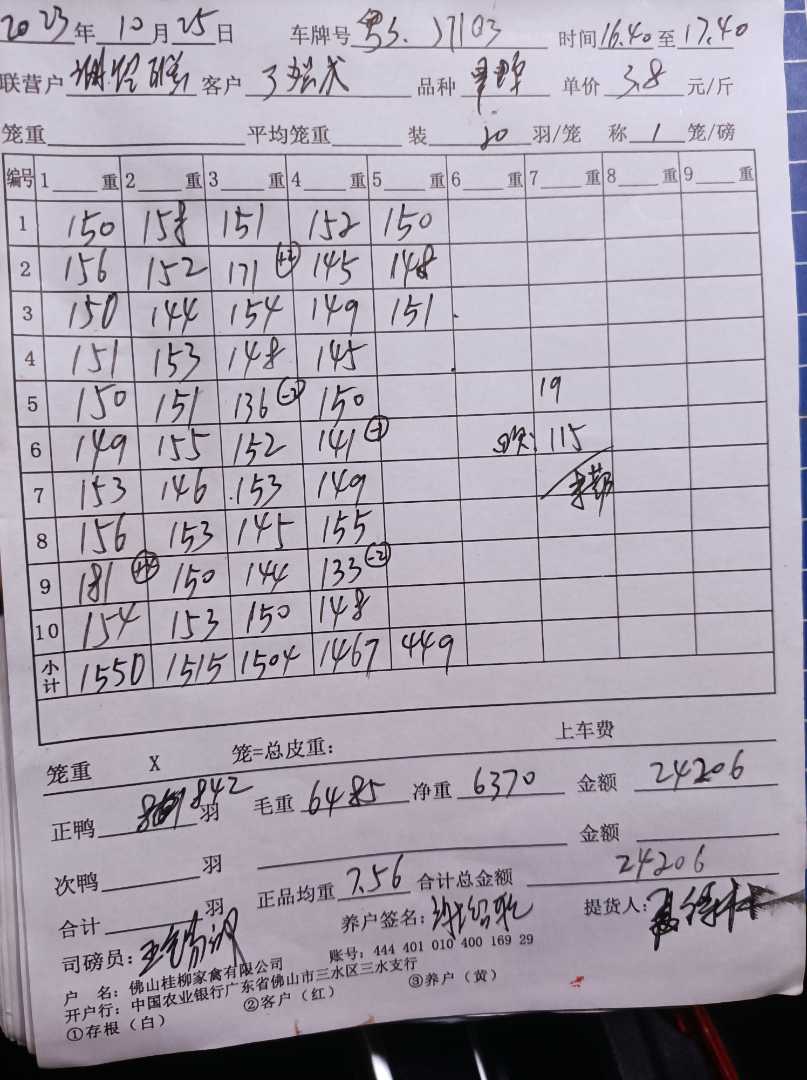 2023年 10月 25日 车牌号 粤S. J7103 时间 16.40 至 17.40
联营户 客户 品种 单价 3.8 元/斤
笼重 平均笼重 装 20 羽/笼 称 1 笼/磅
编号 1 重 2 重 3 重 4 重 5 重 6 重 7 重 8 重 9 重
1 150 158 151 152 150
2 156 152 171 (+2) 145 148
3 150 144 154 149 151
4 151 153 148 145
5 150 151 136 (-2) 150 19
6 149 155 152 141 (-1) 115
7 153 146 153 149
8 156 153 145 155
9 181 (+4) 150 144 133 (-2)
10 154 153 150 148
小计 1550 1515 1504 1467 449
笼重 X 笼=总皮重: 上车费
正鸭 842 羽 毛重 6485 净重 6370 金额 24206
次鸭 羽 金额
合计 羽 正品均重 7.56 合计总金额 24206
司磅员: 养户签名: 提货人:
户 名: 佛山桂柳家禽有限公司 账号: 444 401 010 400 169 29
开户行: 中国农业银行广东省佛山市三水区三水支行
①存根（白） ②客户（红） ③养户（黄）